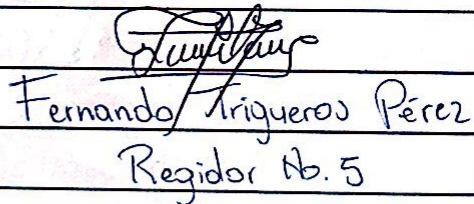 Fernando Trigueros Pérez
Regidor No. 5